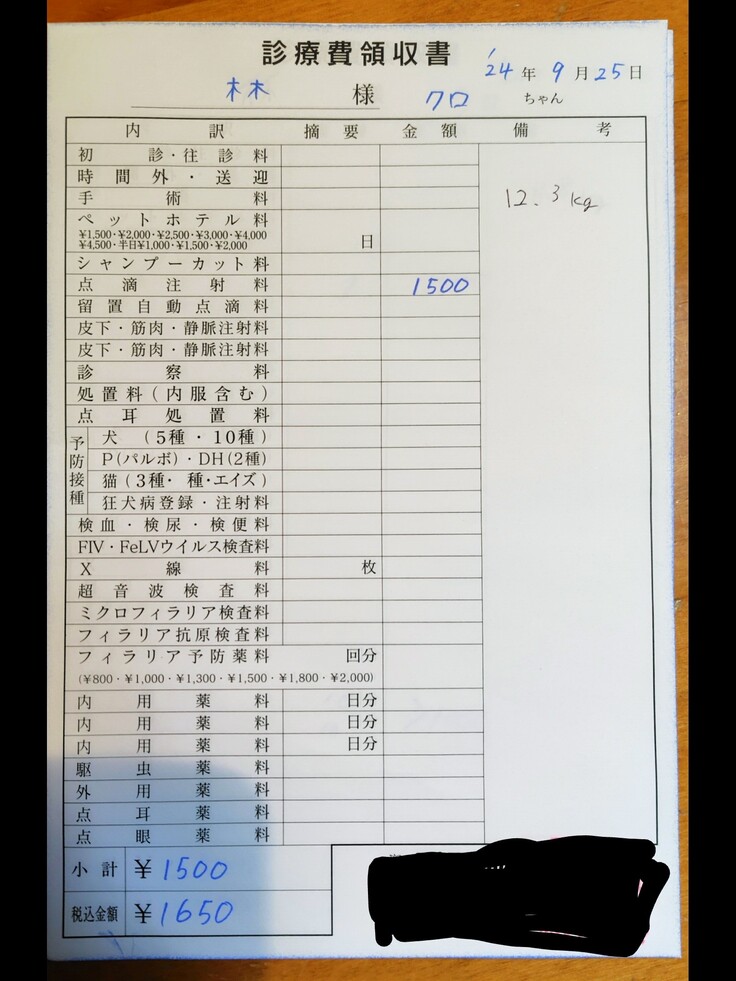 診療費領収書
'24年9月25日
林 様 クロ ちゃん
内訳 摘要 金額 備考
初診・往診料
時間外・送迎
手術料
12.3kg
ペットホテル料
¥1,500・¥2,000・¥2,500・¥3,000・¥4,000
¥4,500・半日¥1,000・¥1,500・¥2,000 日
シャンプーカット料
点滴注射料 1500
留置自動点滴料
皮下・筋肉・静脈注射料
皮下・筋肉・静脈注射料
診察料
処置料(内服含む)
点耳処置料
予防接種
犬 (5種・10種)
P(パルボ)・DH(2種)
猫(3種・ 種・エイズ)
狂犬病登録・注射料
検血・検尿・検便料
FIV・FeLVウイルス検査料
X線料 枚
超音波検査料
ミクロフィラリア検査料
フィラリア抗原検査料
フィラリア予防薬料 回分
(¥800・¥1,000・¥1,300・¥1,500・¥1,800・¥2,000)
内用薬料 日分
内用薬料 日分
内用薬料 日分
駆虫薬料
外用薬料
点耳薬料
点眼薬料
小計 ¥1500
税込金額 ¥1650